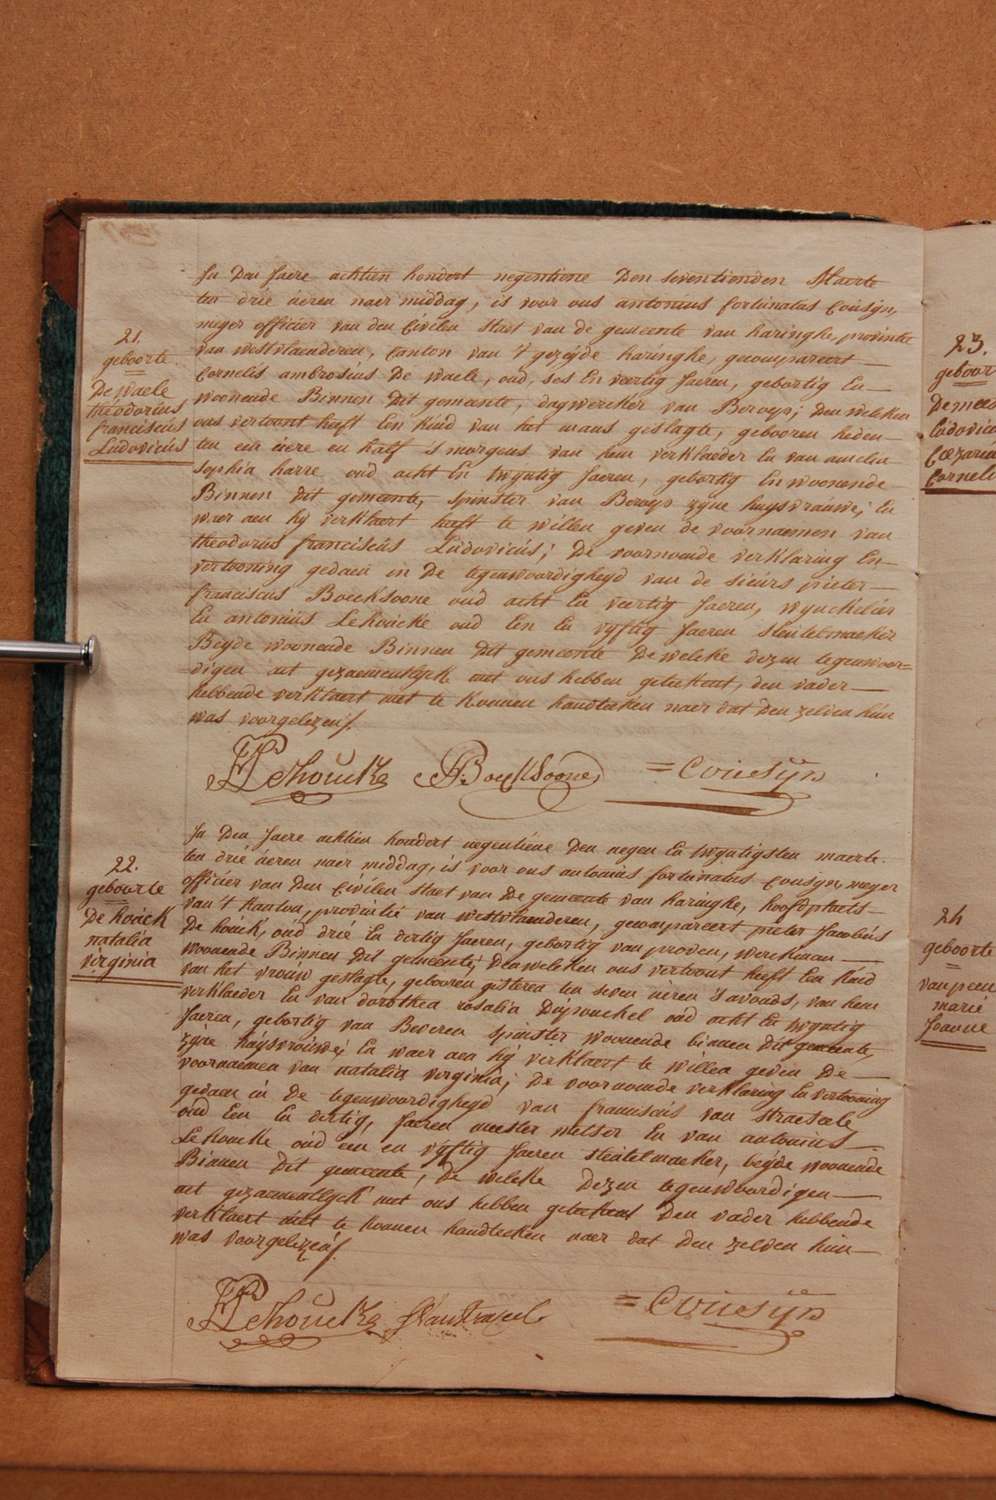 21.
geboorte
De Waele
theodorius
franciscus
Ludovicus
In Den Jaere achtien hondert negentiene Den seventienden Maerte
ten drie ueren naer middag, is voor ons antonius fortunatus Cousyn,
meyer officier van den Civilen Staet van de gemeente van haringhe, provintie
van westvlaenderen, Canton van 't gezeyde haringhe, gecompareert
Cornelis ambrosius De Waele, oud, ses En veertig Jaeren, gebortig En
woonende Binnen Dit gemeente, dagwercker van Beroep; Den welcken
ons vertoont heeft Een kind van het mans geslagte, gebooren heden
ten een uere en half s morgens van hem verklaeder En van amelia
Sophia harre oud acht En twyntig Jaeren, gebortig En woonende
Binnen Dit gemeente, spinster van Beroep zyne huysvrouwe; En
waer aen hy verklaert heeft te willen geven de voornaemen van
theodorius franciscus Ludovicus; De voornoemde verklaring En
vertooning gedaen in De tegenwoordigheyd van de sieurs pieter
franciscus Boecksoone oud acht En veertig Jaeren, wynckelier
En antonius Lehoucke oud Een En vyftig Jaeren sleutelmaeker
Beyde woonende Binnen Dit gemeente De welcke dezen tegenwoor=
digen act gezaementlyck met ons hebben geteekent, den vader
hebbende verklaert niet te konnen handteeken naer dat Den zelven hun
was voorgelezen/.
Lehoucke Boecksoone =Couesyn
22.
geboorte
De houck
natalia
virginia
In Den Jaere achtien hondert negentiene Den negen En twyntigsten maerte
ten drie ueren naer middag, is voor ons antonius fortunatus Cousyn, meyer
officier van den Civilen Staet van De gemeente van haringhe, hoofdplaets
van 't kanton, provintie van westvlaenderen, gecompareert pieter Jacobus
De houck, oud drie En dertig Jaeren, gebortig van proven, werckman
woonende Binnen Dit gemeente; Den welcken ons vertoont heeft Een kind
van het vrouw geslagte, gebooren gisteren ten seven ueren 'savonds, van hem
verklaeder En van dorothea rosalia Duyvouckel oud acht En twyntig
Jaeren, gebortig van Beveren spinster woonende binnen Dit gemeente,
zyne huysvrouwe; En waer aen hy verklaert te willen geven De
voornaemen van natalia virginia; De voornoemde verklaring En vertooning
gedaen in De tegenwoordigheyd van franciscus van Straeseele
oud Een En dertig Jaeren meester metser En van antonius
Lehoucke oud een en vyftig Jaeren sleutelmaeker, beyde woonende
Binnen Dit gemeente, De welcke Dezen tegenwoordigen
act gezaementlyck met ons hebben geteekent Den vader hebbende
verklaert niet te konnen handteeken naer dat den zelven hun
was voorgelezen/.
Lehoucke =Couesyn
23.
geboor
Ludovica
Corneli
24
geboorte
marie
Joanne